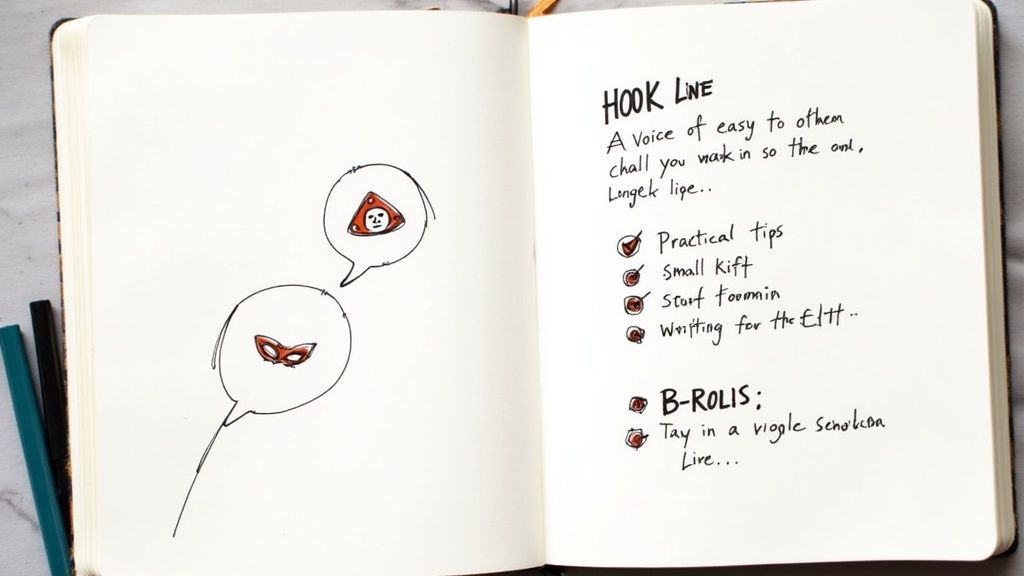 HOOK LINE
A voice of easy to othem
chall you wakk in so the and.
Longek lipe..
Practical tips
Small kift
Start foomnin
Writing for the EItt..
B-ROLIS:
Tay in a viogle
Live...